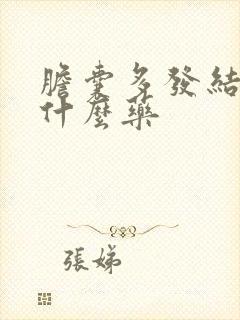 膽囊多發結
什麼藥
張娣